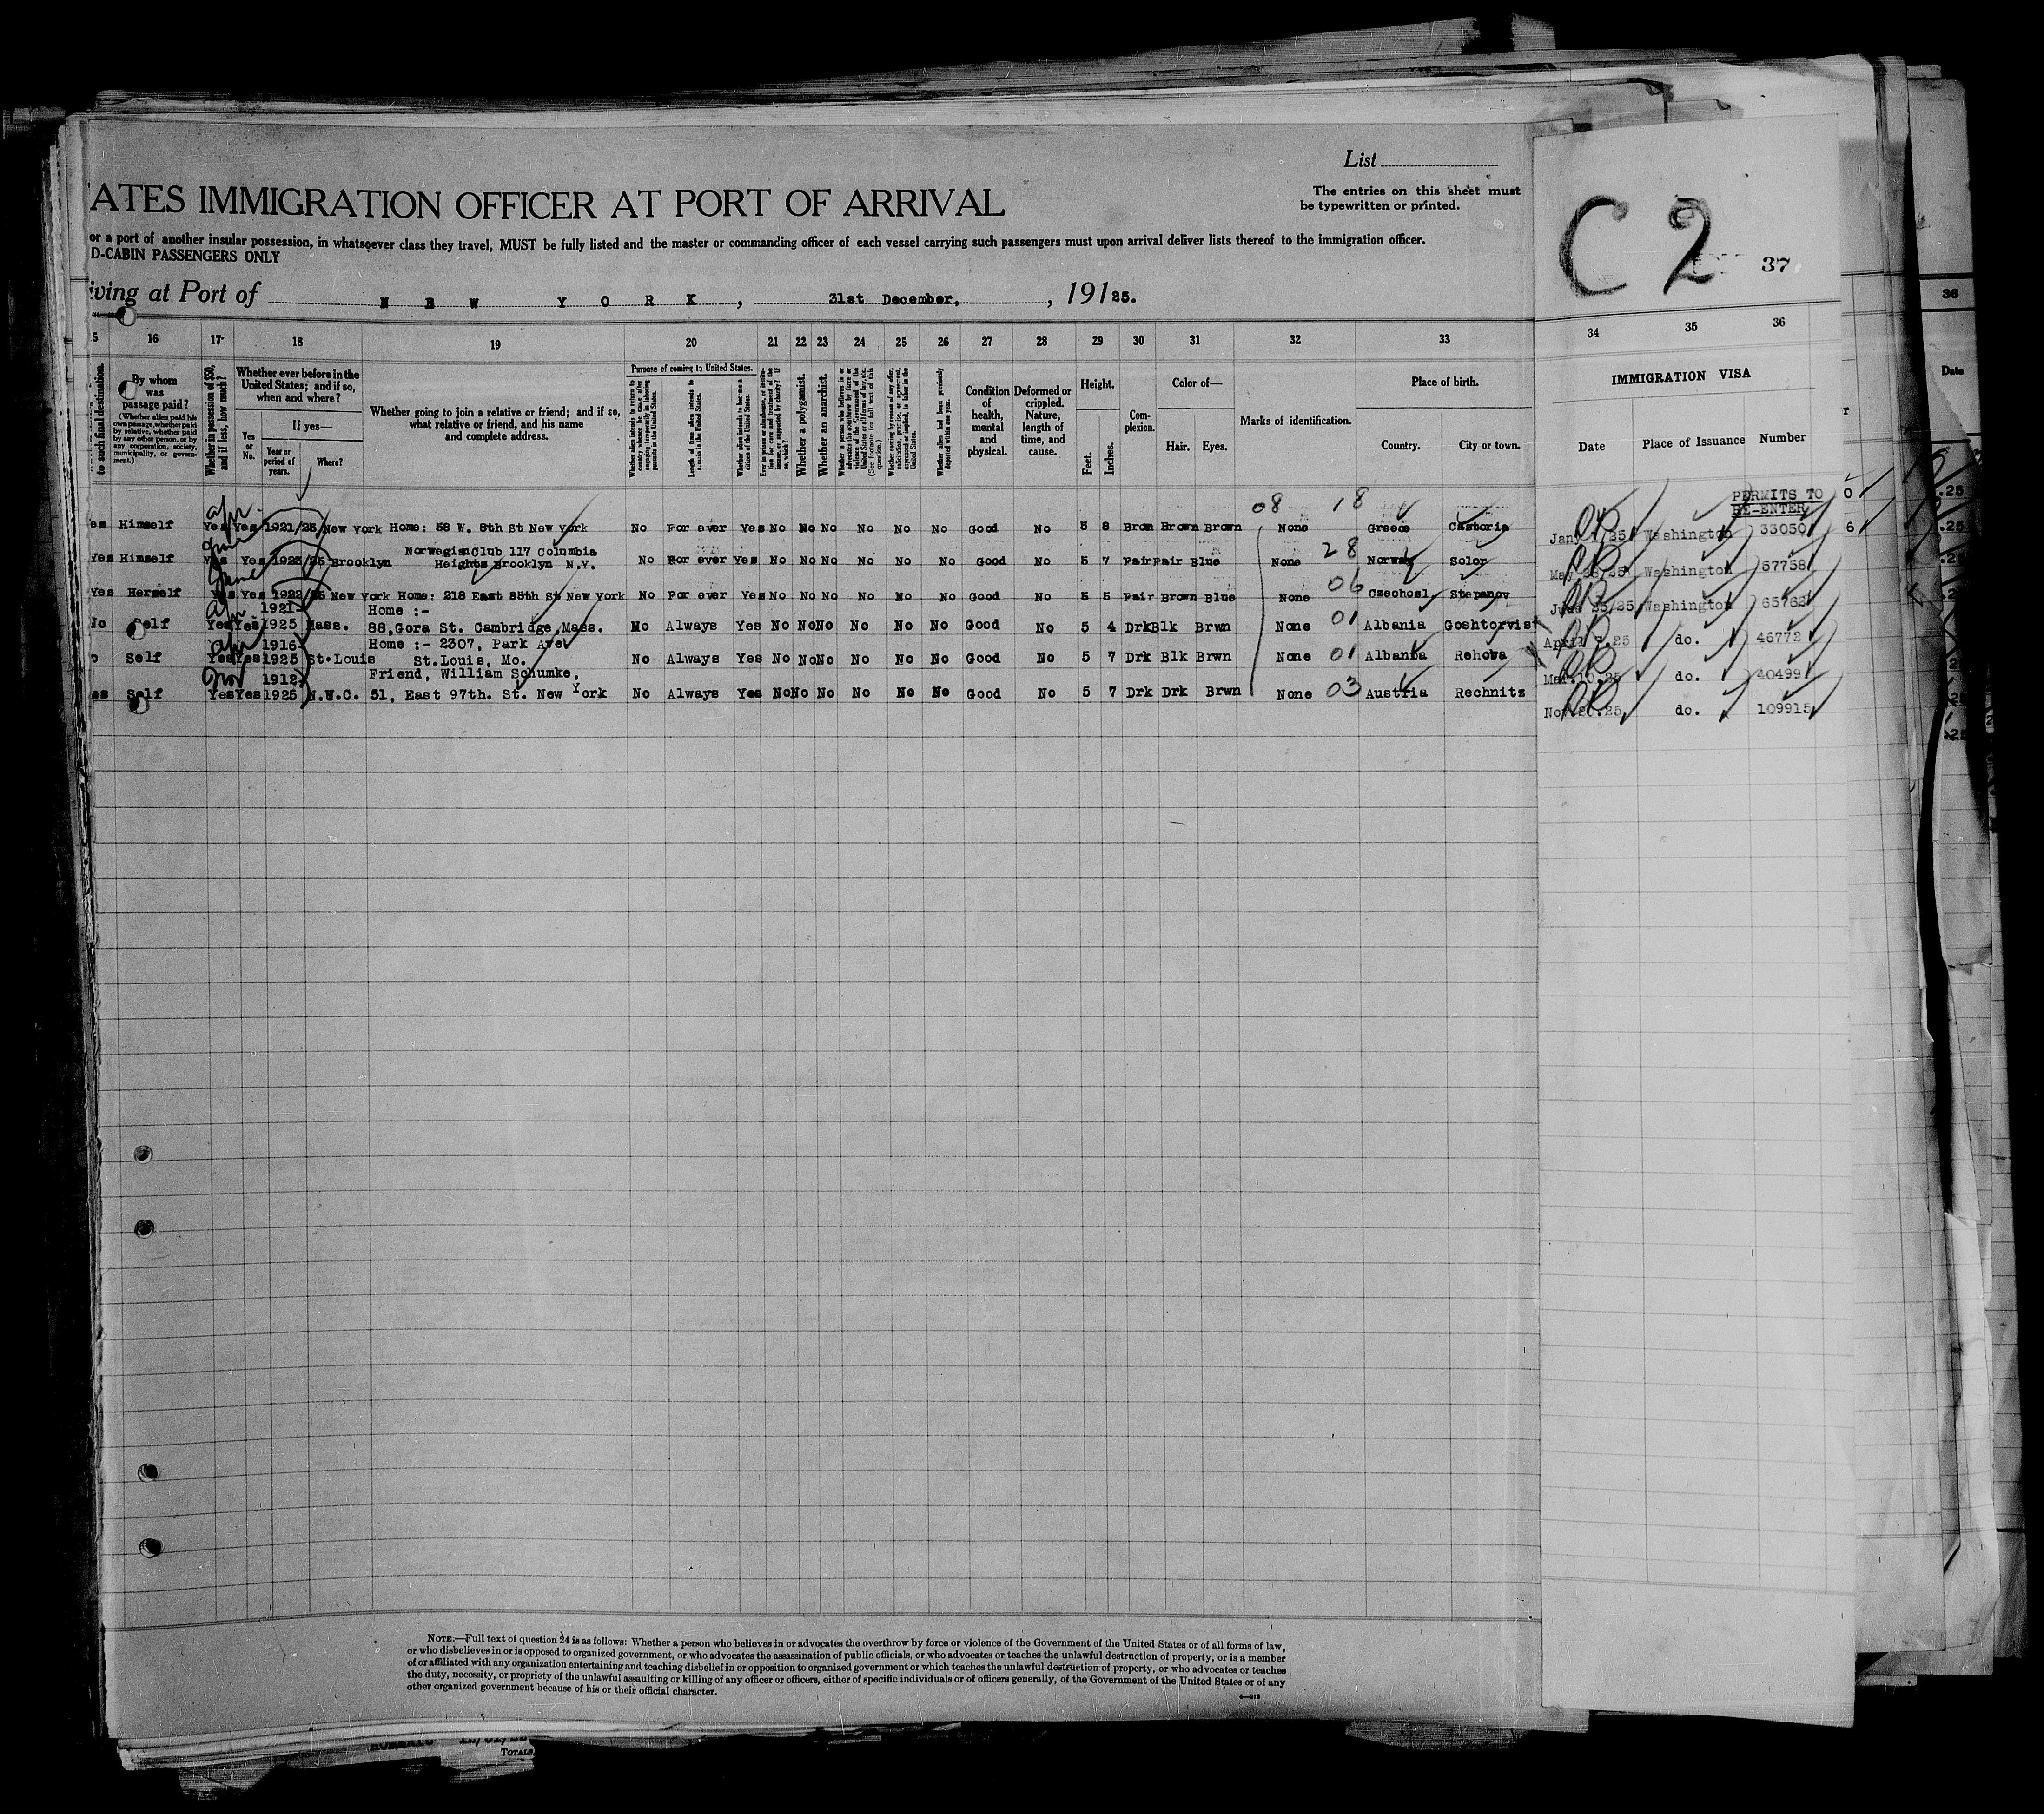 List
The entries on this sheet must
be typewritten or printed.
ATES IMMIGRATION OFFICER AT PORT OF ARRIVAL
or a port of another insular possession, in whatsoever class they travel, MUST be fully listed and the master or commanding officer of each vessel carrying such passengers must upon arrival deliver lists thereof to the immigration officer.
D-CABIN PASSENGERS ONLY
C 2
37
iving at Port of N E W Y O R K , 31st December, , 19125.
5 16 17 18 19 20 21 22 23 24 25 26 27 28 29 30 31 32 33 34 35 36
to such final destination.
By whom was passage paid?
(Whether alien paid his own passage, whether paid by relative, whether paid by any other person, or by any corporation, society, municipality, or government.)
Whether in possession of $50, and if less, how much?
Whether ever before in the United States; and if so, when and where?
Yes or No.
If yes—
Year or period of years.
Where?
Whether going to join a relative or friend; and if so, what relative or friend, and his name and complete address.
Purpose of coming to United States.
Whether alien intends to return to country whence he came after engaging temporarily in laboring pursuits in the United States.
Length of time alien intends to remain in the United States.
Whether alien intends to become a citizen of the United States.
Whether a polygamist.
Whether an anarchist.
Condition of health, mental and physical.
Deformed or crippled. Nature, length of time, and cause.
Height.
Feet. Inches.
Complexion.
Color of—
Hair. Eyes.
Marks of identification.
Place of birth.
Country. City or town.
IMMIGRATION VISA
Date Place of Issuance Number
PERMITS TO
RE-ENTER
08 18
es Himself Yes Yes 1921/25 New York Home: 58 W. 8th St New York No For ever Yes No No No No No No Good No 5 8 Brom Brown Brown None Greece Castoria Washington 33050
Norwegian Club 117 Columbia 28
Yes Himself Yes Yes 1923/25 Brooklyn Heights Brooklyn N.Y. No For ever Yes No No No No No No Good No 5 7 Fair Fair Blue None Norway Solor Washington 57758
06
Yes Herself Yes Yes 1922/25 New York Home: 218 East 85th St New York No For ever Yes No No No No No No Good No 5 5 Fair Brown Blue None Czechosl. Stepanov June 25/25 Washington 65762
1921- Home :-
No Self Yes Yes 1925 Mass. 88, Gora St. Cambridge, Mass. No Always Yes No No No No No No Good No 5 4 Drk Blk Brwn None 01 Albania Goshtorvist April 7.25 do. 46772
1916- Home :- 2307, Park Ave
Self Yes Yes 1925 St.Louis St.Louis, Mo. No Always Yes No No No No No No Good No 5 7 Drk Blk Brwn None 01 Albania Rehova Mar.10.25 do. 40499
1912- Friend, William Schumke,
es Self Yes Yes 1925 N.W.C. 51, East 97th. St. New York No Always Yes No No No No No No Good No 5 7 Drk Drk Brwn None 03 Austria Rechnitz Nov.20.25 do. 109915
NOTE.—Full text of question 24 is as follows: Whether a person who believes in or advocates the overthrow by force or violence of the Government of the United States or of all forms of law,
or who disbelieves in or is opposed to organized government, or who advocates the assassination of public officials, or who advocates or teaches the unlawful destruction of property, or is a member
of or affiliated with any organization entertaining and teaching disbelief in or opposition to organized government or which teaches the unlawful destruction of property, or who advocates or teaches
the duty, necessity, or propriety of the unlawful assaulting or killing of any officer or officers, either of specific individuals or of officers generally, of the Government of the United States or of any
other organized government because of his or their official character.
TOTALS
36
Date